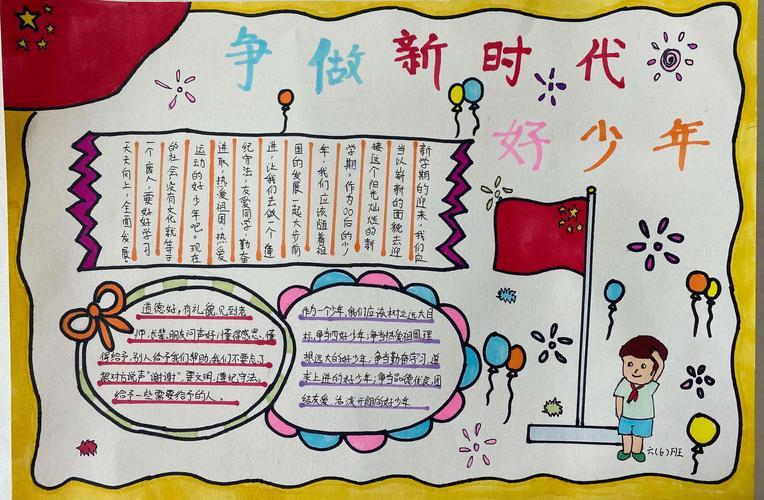 争做新时代
好少年
新学期的迎来,我们应
当以崭新的面貌去迎
接这个阳光灿烂的新
学期,作为00后的少
年,我们应该随着祖
国的发展一起大步前
进,让我们去做一个遵
纪守法,友爱同学,勤奋
进取,热爱祖国,热爱
运动的好少年吧。现在
的社会没有文化就等于
一个废人,要好好学习
天天向上,全面发展
道德好,有礼貌,见到老
师,长辈,朋友问声好;懂得感恩,懂
得给予,别人给予我们帮助,我们不要忘了
把对方说声"谢谢".要文明,遵纪守法。
给予一些需要给予的人。
作为一个少年,我们应该树立远大目
标,争当四好少年;争当热爱祖国,理
想远大的好少年;争当勤奋学习,追
求上进的好少年;争当品德优良,团
结友爱,活泼开朗的好少年
六(6)班